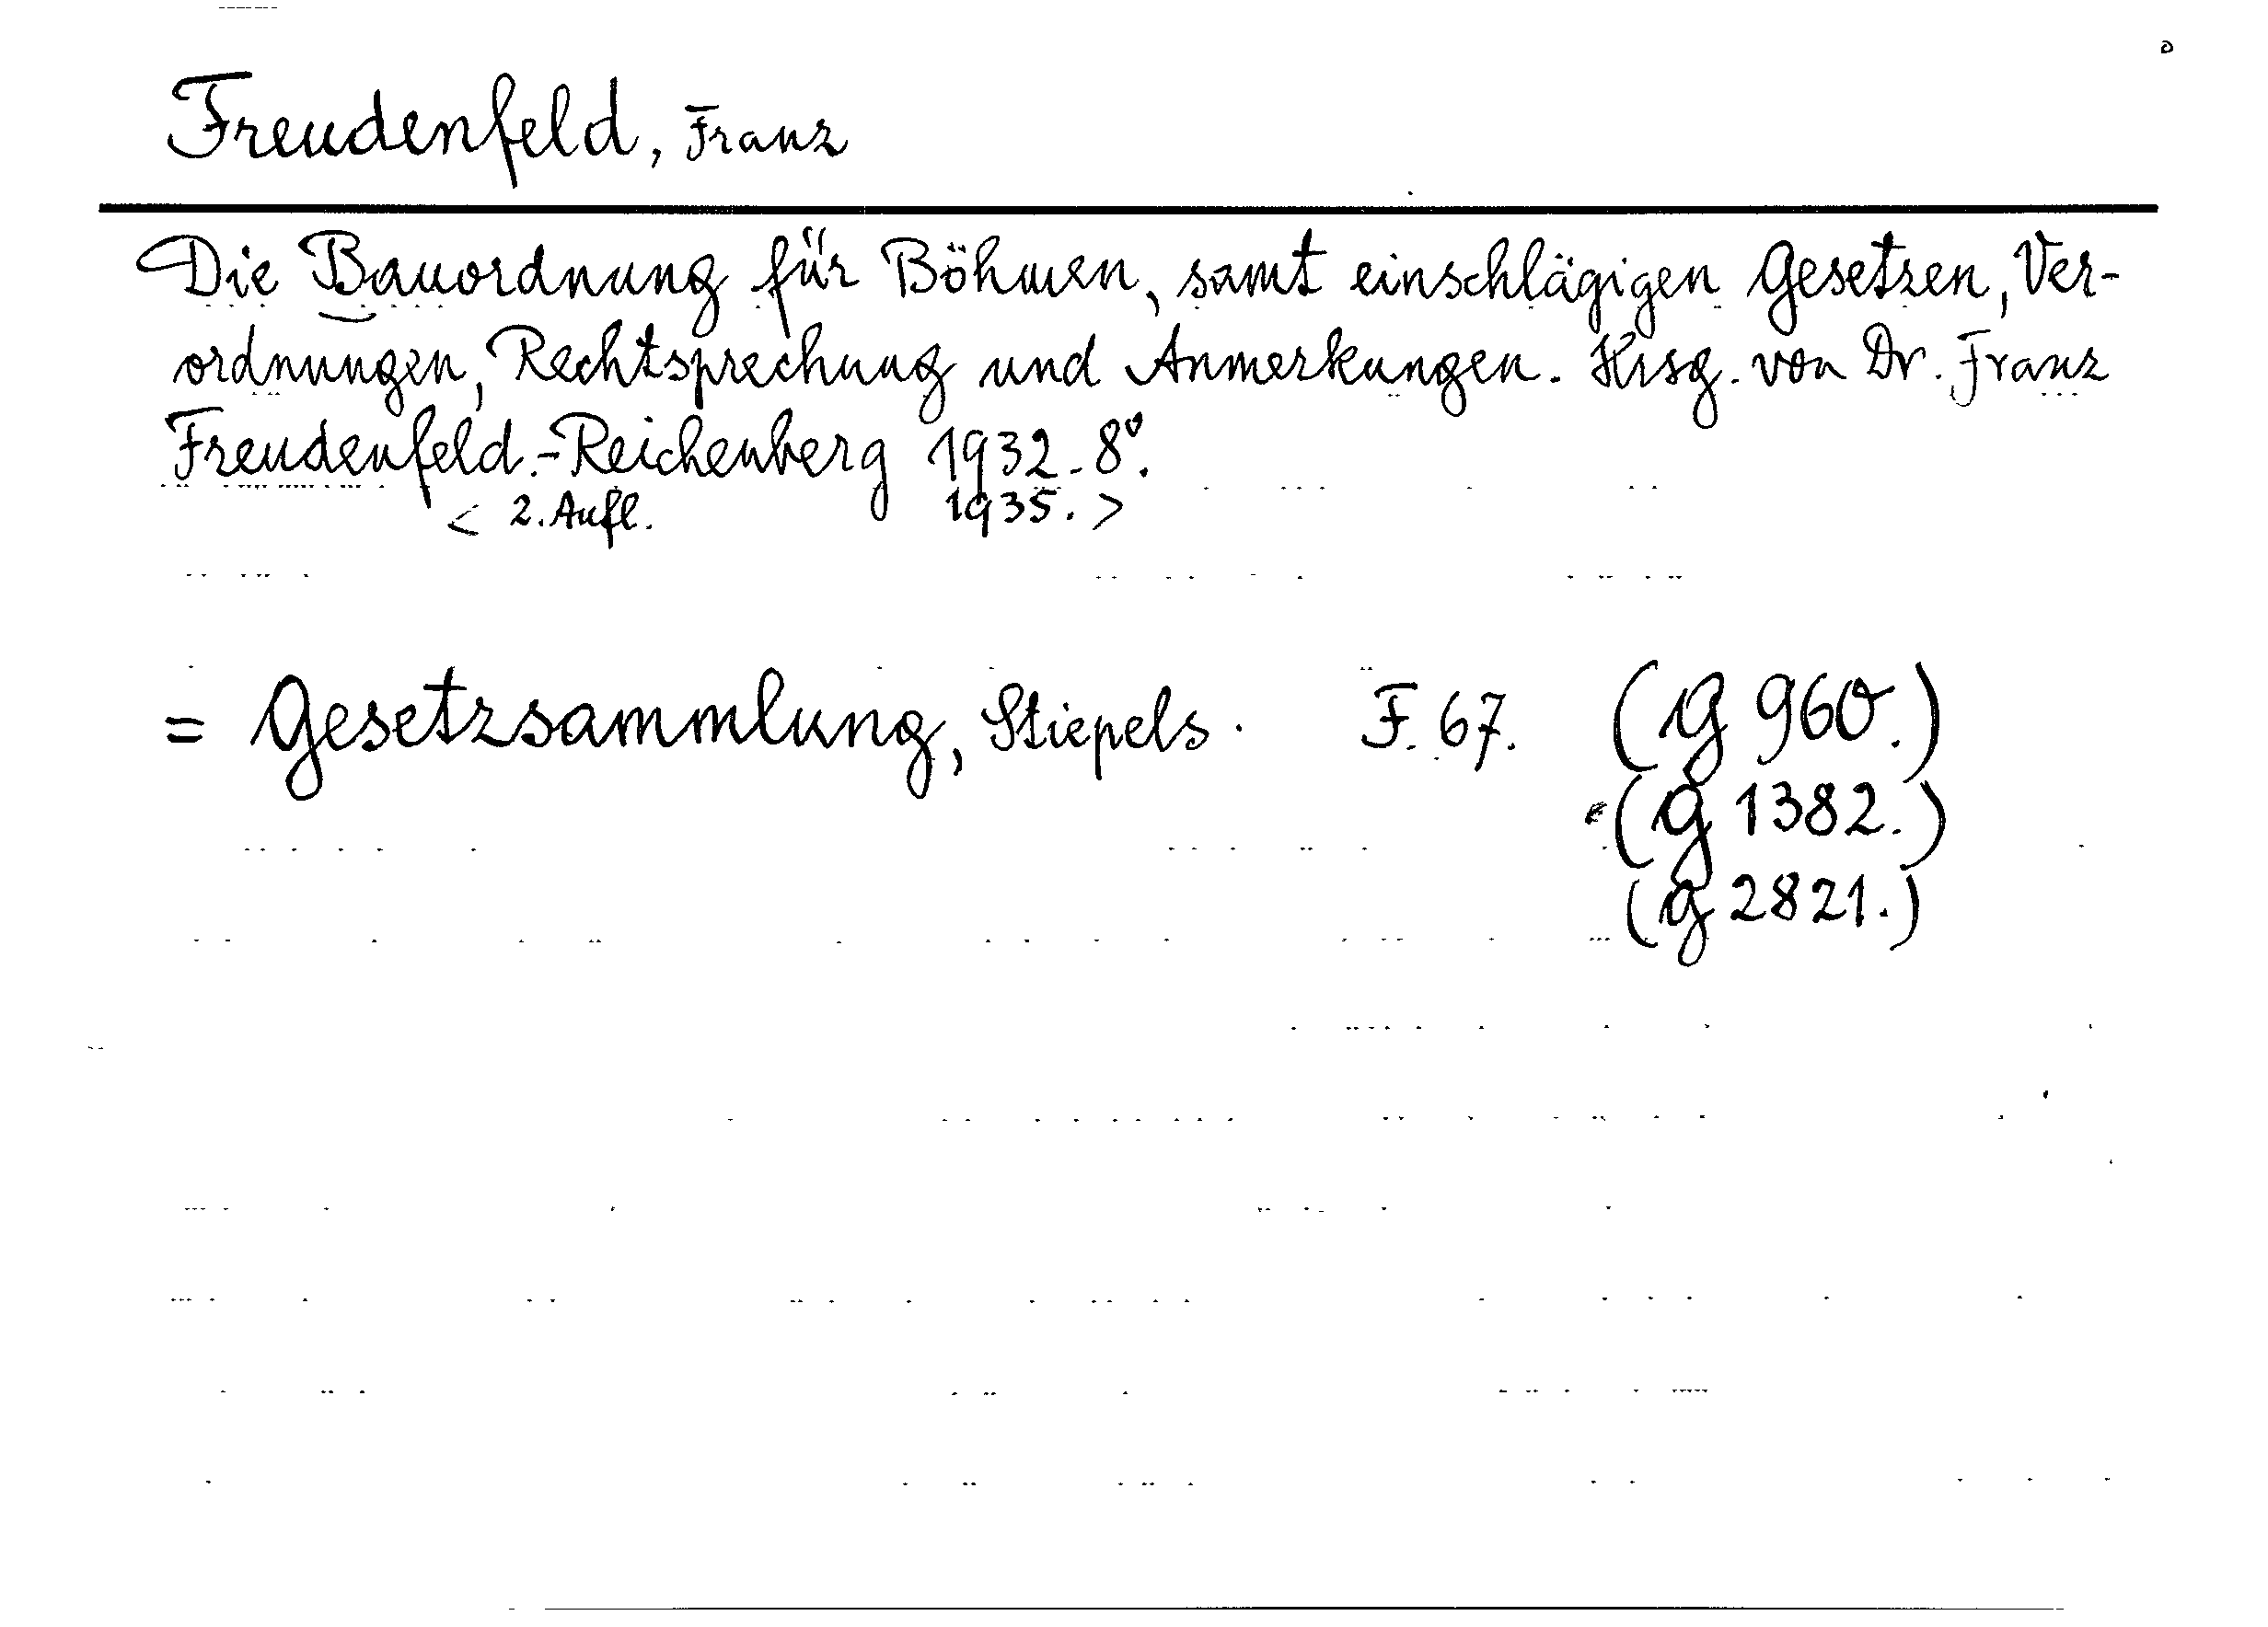 Freudenfeld, Franz
Die Bauordnung für Böhmen, samt einschlägigen Gesetzen, Ver-
ordnungen, Rechtsprechung und Anmerkungen. Hrsg. von Dr. Franz
Freudenfeld.-Reichenberg 1932-8°.
< 2. Aufl. 1935. >
= Gesetzsammlung, Stiepels. F. 67. (G 960.)
(G 1382.)
(G 2821.)